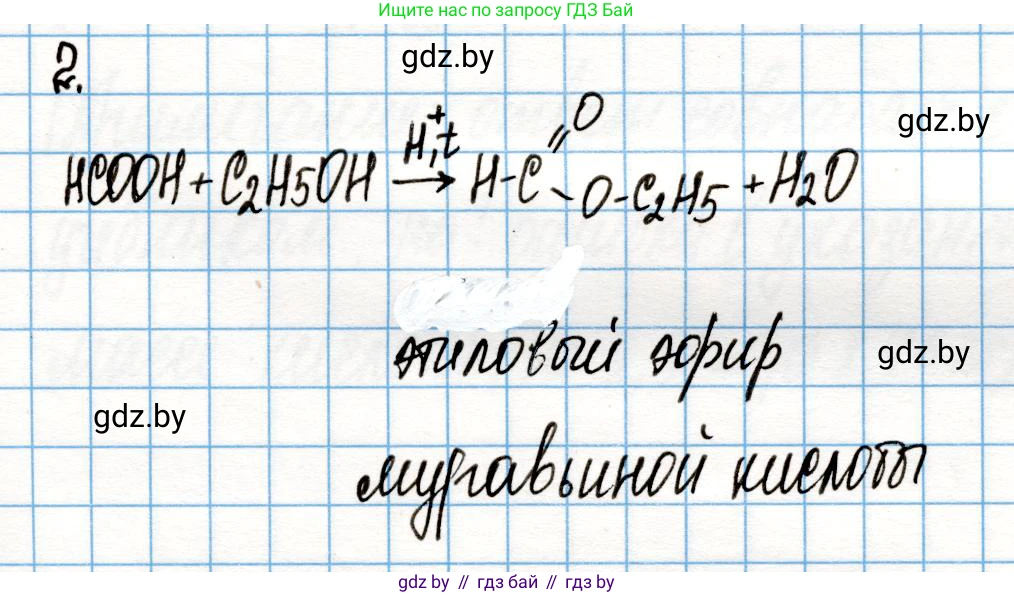 Ищите нас по запросу ГДЗ Бай
2.
gdz.by
gdz.by
HCOOH + C2H5OH H+, t → H-C =O -O-C2H5 + H2O
этиловый эфир
gdz.by
gdz.by
муравьиной кислоты
gdz.by // гдз бай // гдз by